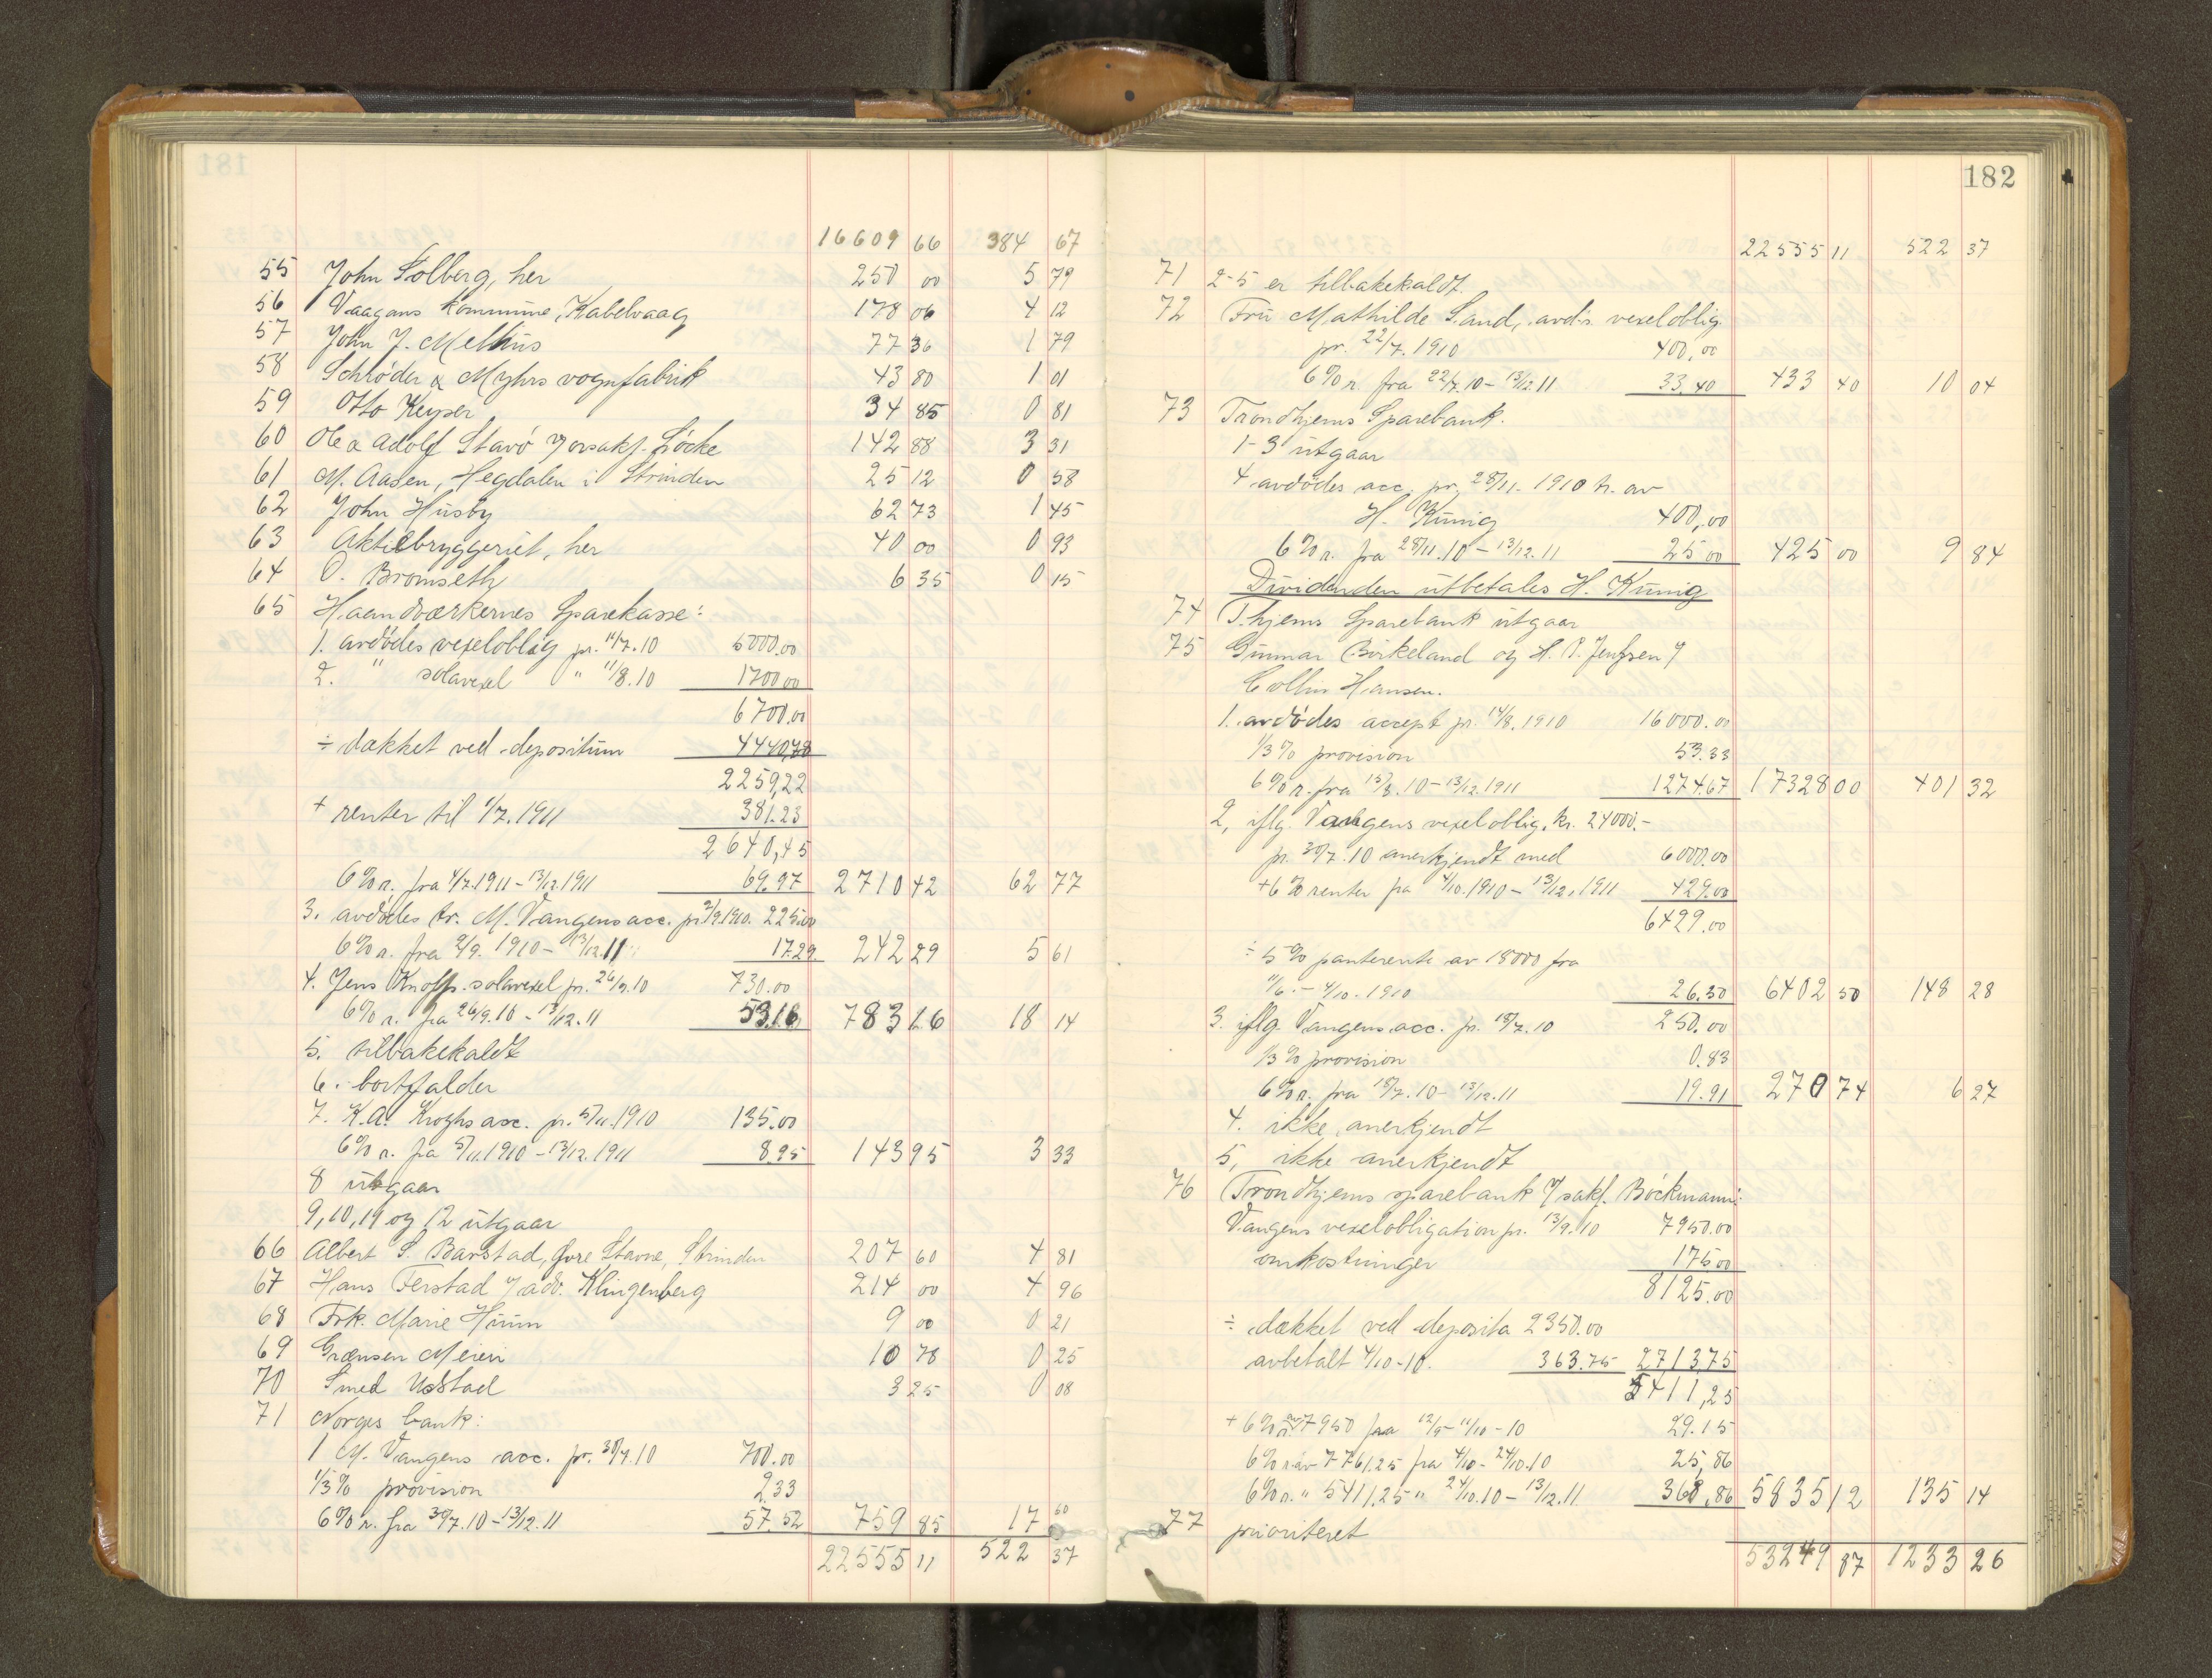 181
16609 66 384 67
55 John Solberg, her 250 00 5 79
56 Vaagans kommune, Kabelvaag 178 06 4 12
57 John J. Melhus 77 36 1 79
58 Schrøder & Myhrs vognfabrik 43 80 1 01
59 Otto Keyser 34 85 0 81
60 Ole & Adolf Stavö 142 88 3 31
61 M. Aasen, Hegdalen i Strinden 25 12 0 58
62 John Husby 62 73 1 45
63 Aktiebryggeriet, her 40 00 0 93
64 O. Bromseth 6 35 0 15
65 Haandværkernes Sparekasse:
1. avdödes vexeloblig pr. 11/7.10 5000.00
2. " solavexel " 11/8.10 1700 00
6700.00
÷ dækket ved depositum 4440,78
2259,22
+ renter til 1/7.1911 381.23
2640,45
6% r. fra 4/7.1911 – 13/12.1911 69.97 2710 42 62 77
3. avdödes tr. M. Vangens acc. pr. 2/9.1910. 225.00
6% r. fra 2/9. 1910 – 13/12.11 17.29 242 29 5 61
4. Jens Knoffs solavexel pr. 26/9.10 730.00
6% r. fra 26/9.10 – 13/12.11 53.16 783 16 18 14
5. tilbakekaldt
6. bortfalder
7. K.A. Kroghs acc. pr. 5/11.1910 135.00
6% r. fra 5/11.1910 – 13/12.1911 8.95 143 95 3 33
8 utgaar
9, 10, 11 og 12 utgaar
66 Albert S. Barstad, Øvre Stavne, Strinden 207 60 4 81
67 Hans Ferstad v/ adv. Klingenberg 214 00 4 96
68 Frk. Marie Huun 9 00 0 21
69 Grænsen Meieri 10 78 0 25
70 Smed Ustad 3 25 0 08
71 Norges bank:
1 M. Vangens acc. pr. 30/7.10 700.00
1/3% provision 2.33
6% r. fra 30/7.10 – 13/12.11 57.52 759 85 17 60
22555 11 522 37
182
22555 11 522 37
71 2-5 er tilbakekaldt.
72 Fru Mathilde Sand, avd's vexeloblig.
pr. 22/7.1910 400,00
6% r. fra 22/7.10 – 13/12.11 33.40 433 40 10 04
73 Trondhjems Sparebank.
1-3 utgaar
4 avdödes acc. pr. 28/11. 1910 tr. av
H. Künig 400,00
6% r. fra 28/11.10 – 13/12.11 25 00 425 00 9 84
Dividenden utbetales H. Künig
74 T.hjems Sparebank utgaar
75 Gunnar Birkeland og H. P. Jenssen v/
Collin Hansen.
1. avdödes accept pr. 14/8.1910 16000.00
1/3% provision 53.33
6% r. fra 15/8.10 – 13/12.1911 1274.67 17328 00 401 32
2, iflg. Vangens vexeloblig. kr. 24000.-
pr. 30/7.10 anerkjendt med 6000.00
+ 6% renter fra 4/10.1910 – 13/12.1911 429.00
6429.00
÷ 5% panterente av 18000 fra
11/6. – 4/10.1910 26.50 6402 50 148 28
3. iflg. Vangens acc. pr. 18/7.10 250.00
1/3% provision 0.83
6% r. fra 18/7.10 – 13/12.11 19.91 270 74 6 27
4. ikke anerkjendt
5, ikke anerkjendt
76 Trondhjems sparebank v/ sakf. Böckmann:
Vangens vexelobligation pr. 13/9.10 7950.00
omkostninger 175 00
8125.00
÷ dækket ved deposita 2350.00
avbetalt 4/10-10. 363.75 2713.75
5411,25
+ 6% r. av 7950 fra 12/9 – 4/10-10 29.15
6% r av 7761.25 fra 4/10 – 24/10.10 25,86
6% r. " 5411.25 " 24/10.10 – 13/12.11. 368,86 5835 12 135 14
77 prioriteret
53249 87 1233 26